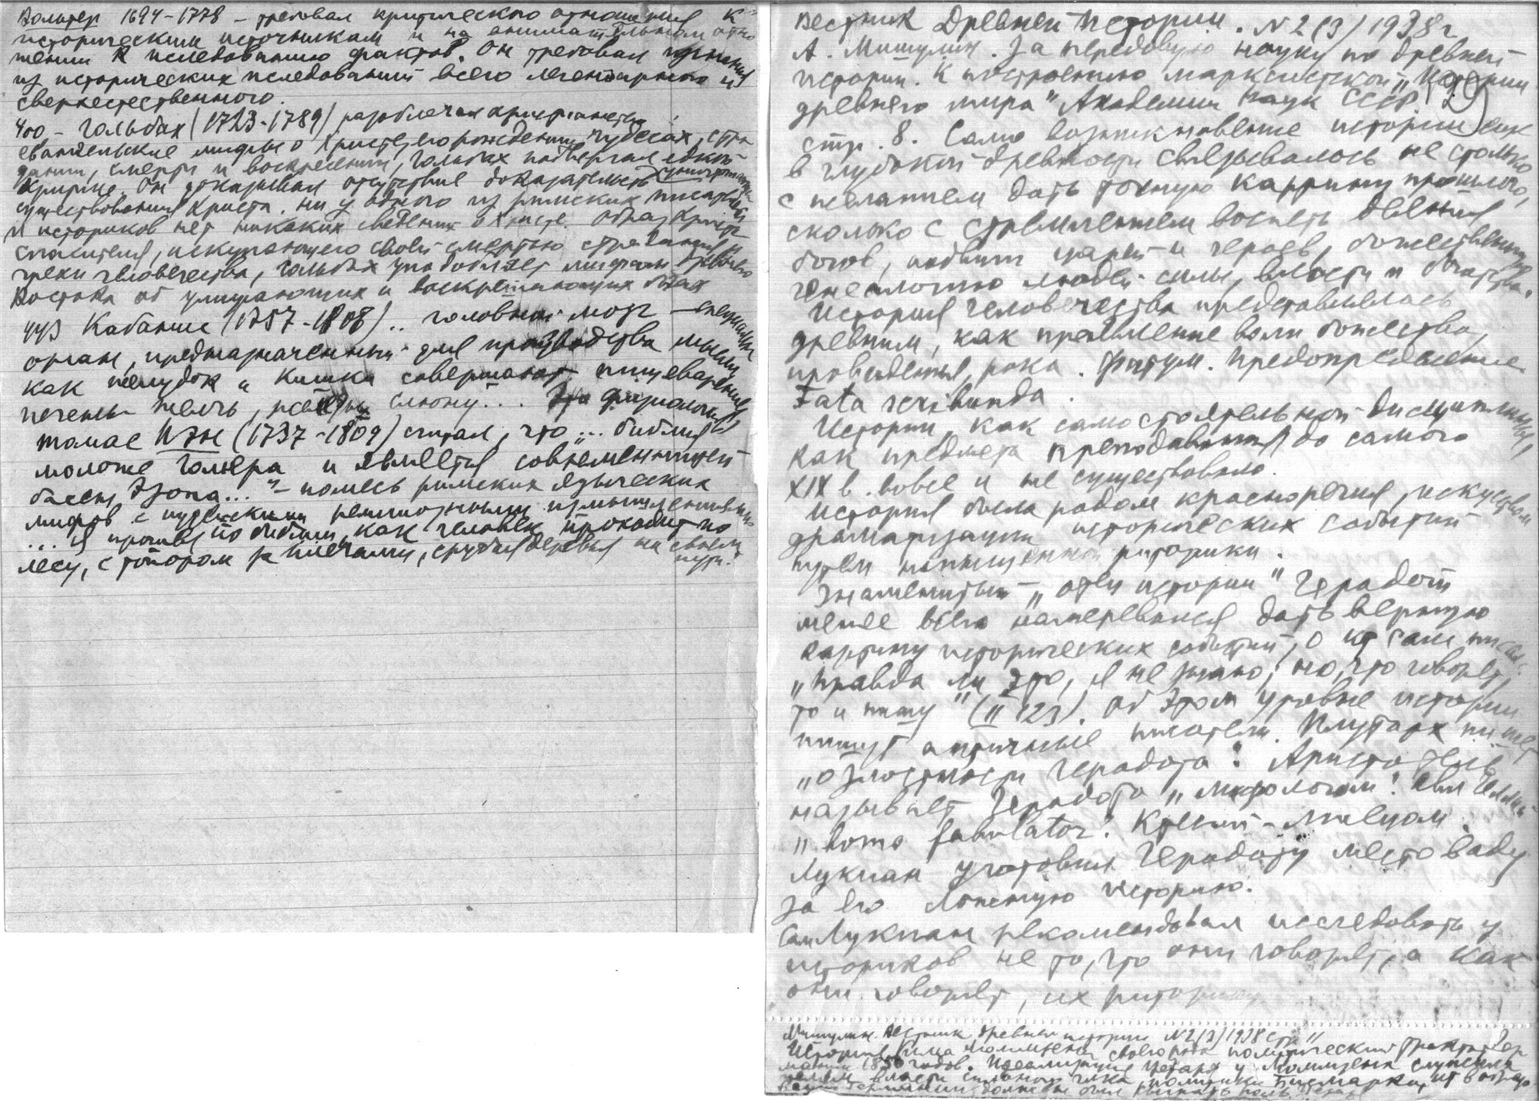 Вольтер 1694-1778 - требовал критического отношения к
историческим источникам и на внимательном отно
шении к исследованию фактов. Он требовал изгнания
из исторических исследований всего легендарного и
сверхестественного.
400 - Гольбах (1723-1789) разоблачал христианство
евангельские мифы о Христе, его рождении, чудесах, стра
дании, смерти и воскресении, Гольбах подвергал едкой
критике. Он доказывал отсутствие доказательств
существования Христа. Ни у одного из римских писателей
и историков нет никаких сведений о Христе. Образ Христа
спасителя, искупающего своей смертью страдания и
грехи человечества, Гольбах уподобляет мифам древнего
Востока об умирающих и воскресающих богах
443 Кабанис (1757-1808).. головной мозг - специальный
орган, предназначенный для производства мысли,
как желудок и кишки совершают пищеварение
печень желчь, железы слюну...
Томас Пэн (1737-1809) считал, что "... библия
моложе Гомера и является современницей
басен Эзопа..." - помесь римских языческих
мифов с иудейскими религиозными измышлениями
... я прошел по библии, как человек проходит по
лесу, с топором за плечами, срубая деревья на своем
пути.
Вестник Древней Истории. N2 (3) 1938г
А. Мишулин. За передовую науку по древней
истории. К построению марксистской "Истории
древнего мира" Академии Наук СССР. (29)
стр. 8. Само возникновение истории еще
в глубокой древности связывалось не столько
с желанием дать точную картину прошлого,
сколько с стремлением воспеть деяния
богов, подвиги царей и героев, божественную
генеалогию людей силы, власти и богатства.
История человечества представлялась
древним, как проявление воли божества,
провидения, рока. Фатум. Предопределение
Fata scribunda.
Истории, как самостоятельной дисциплины,
как предмета преподавания до самого
XIX в. вовсе и не существовало.
История была родом красноречия, искусством
драматизации исторических событий
путем напыщенной риторики.
Знаменитый "отец истории" Геродот
менее всего намеревался дать верную
картину исторических событий, о кт сам писал.
"Правда ли это, я не знаю, но, что говорят,
то и пишу" (II 123). Об этом уровне истории
пишут античные писатели. Плутарх пишет
"о злостности Геродота". Аристотель
называет Геродота "мифологом". Авл Геллий
"homo fabulator". Ктесий - лжецом
Лукиан уготовил Геродоту место в аду
за его лживую историю.
Сам Лукиан рекомендовал исследовать у
историков не то, что они говорят, а как
они говорят, их риторику
Мишулин. Вестник древней истории N2(3) 1938 стр 11
История Рима Моммзена своего рода политический трактат Гер
мании 1850 годов. Идеализация Цезаря у Моммзена служила
власти политики Бисмарка,